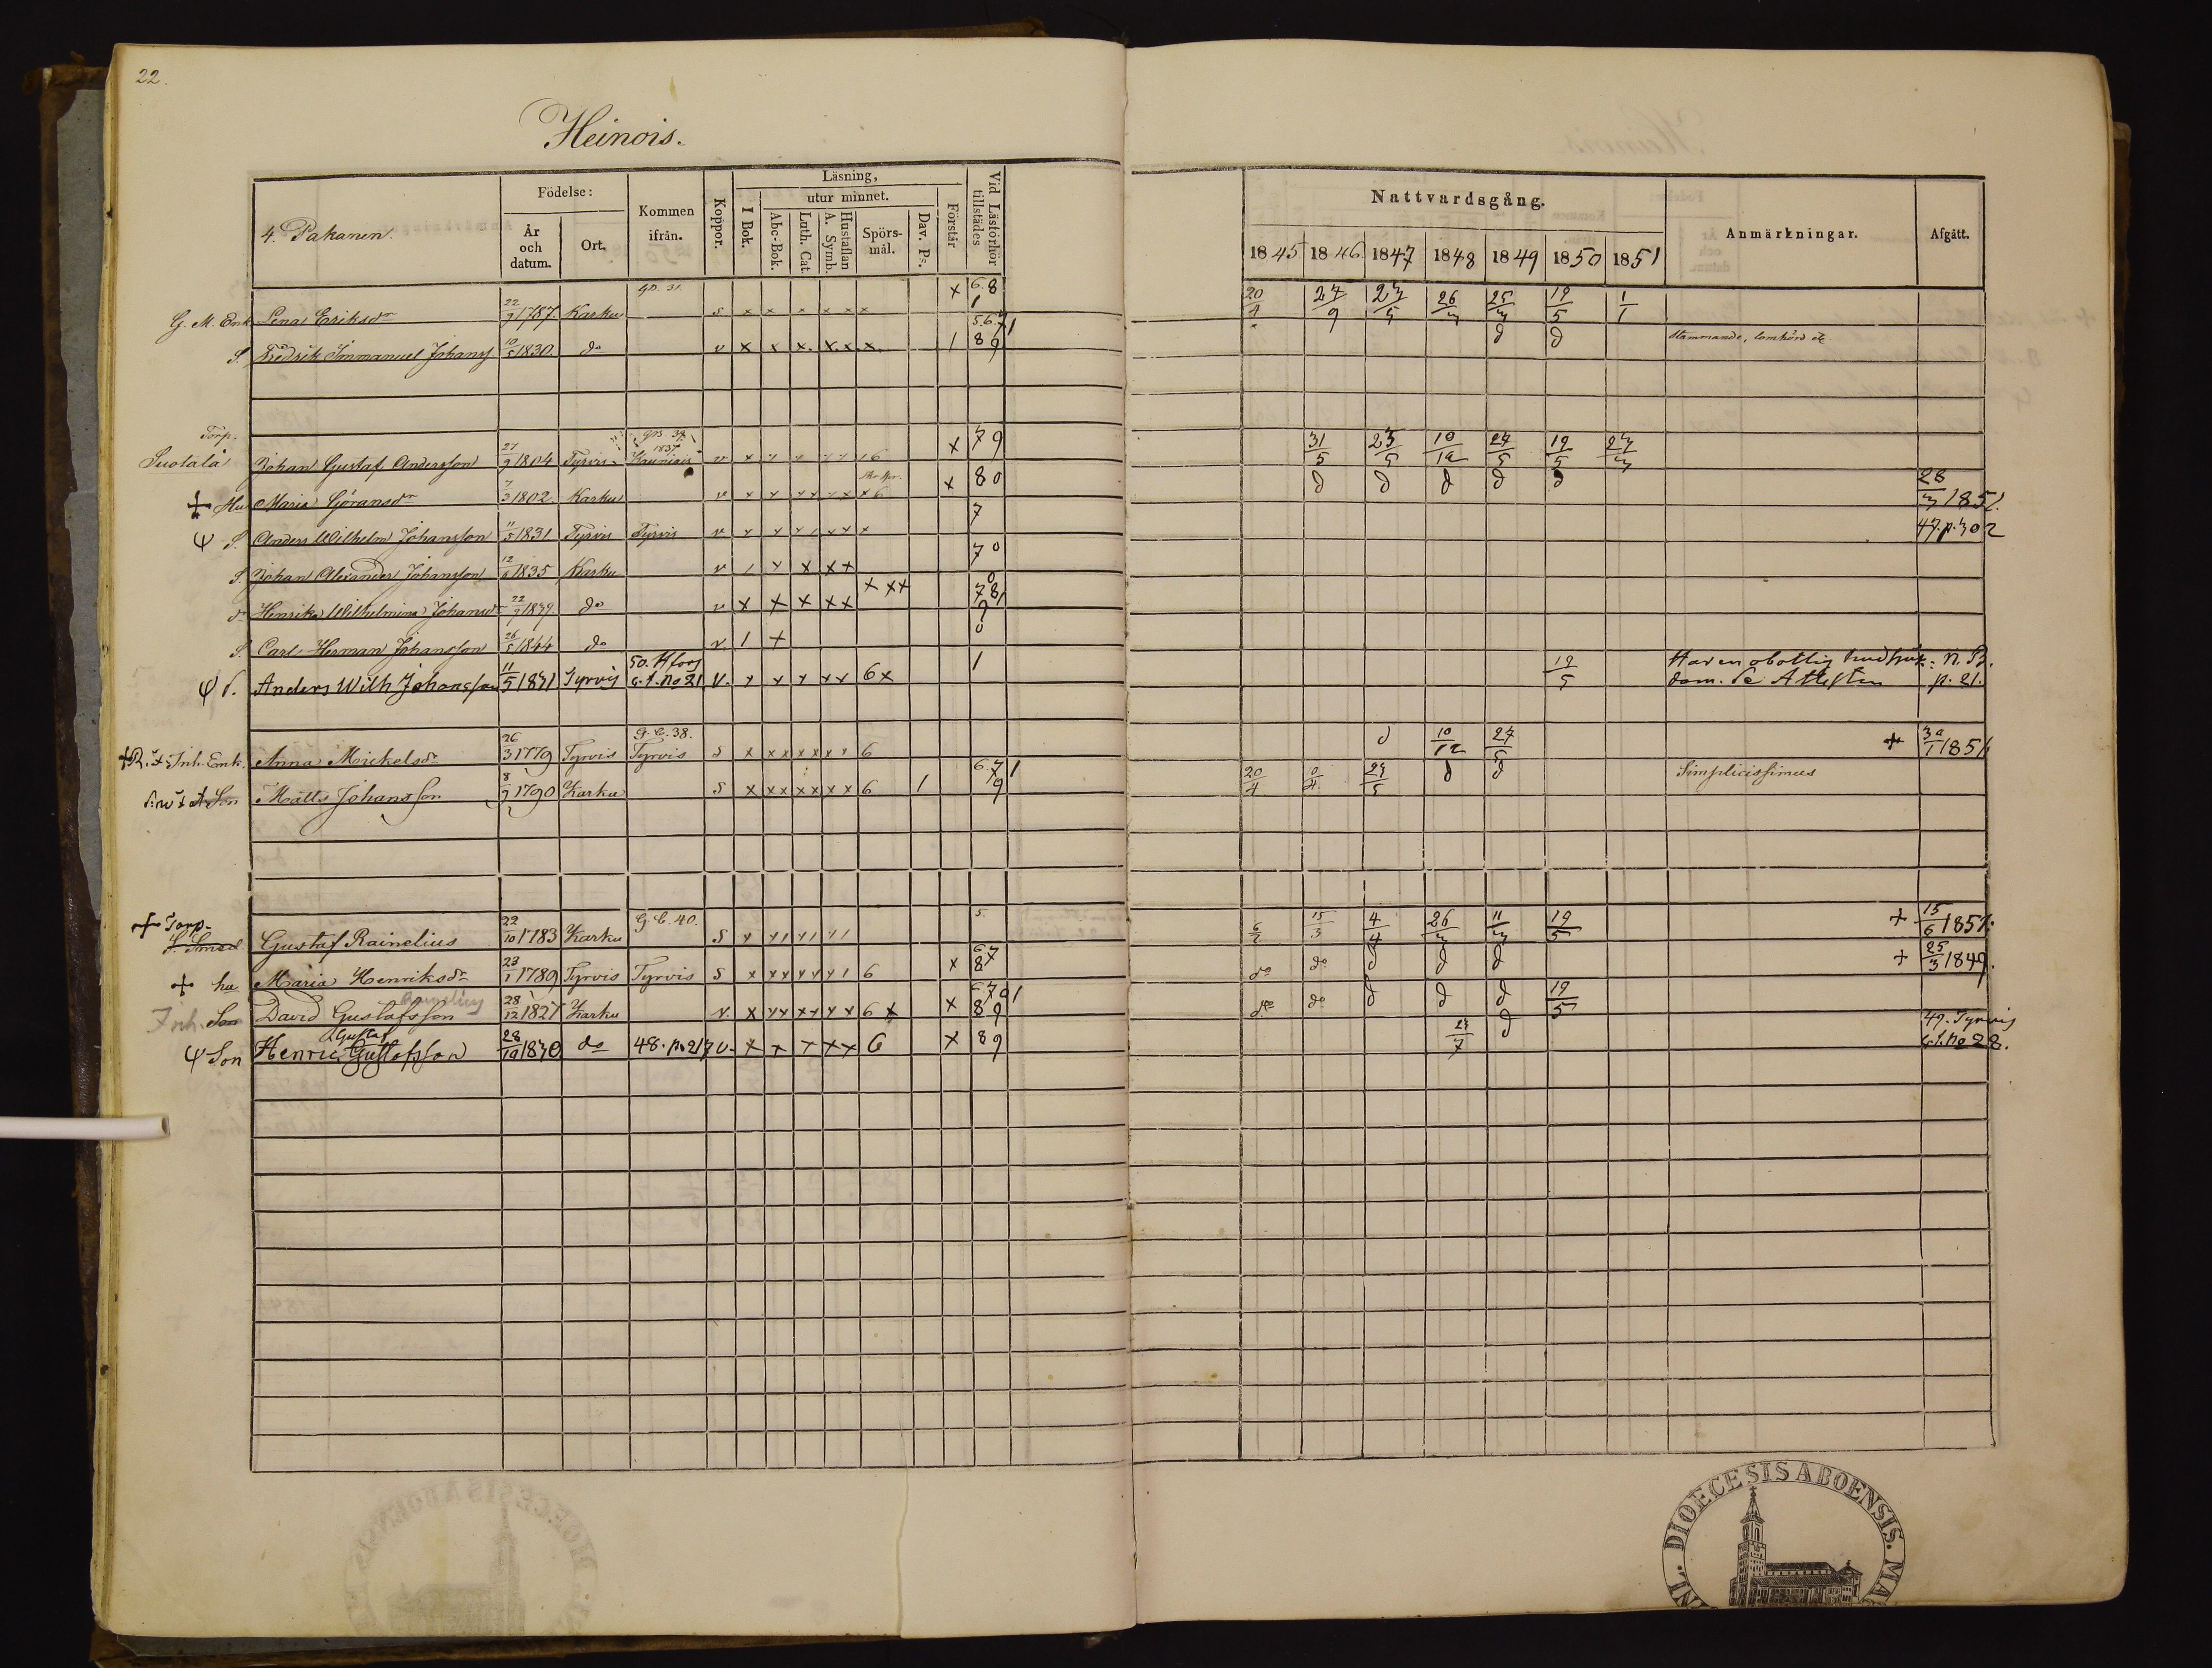 22.
Heinois.
4. Pakanen.
Födelse:
År och datum.
Ort.
Kommen ifrån.
Koppor.
Läsning,
I Bok.
utur minnet.
Abc-Bok.
Luth. Cat.
Hustaflan A. Symb.
Spörs-mål.
Dav. Ps.
Förstår
Vid Läsförhör tillstädes
Nattvardsgång.
1845 1846 1847 1848 1849 1850 1851
Anmärkningar.
Afgått.
G. M. Enk Lena Eriksdr 22/9 1787 Karku s x x x x x x x 6.8 1 20/4 27/9 23/5 26/3 25/3 19/5 1/1
S. Fredrik Immanuel Johanss 10/5 1830. do v x x x. x. x x. 1 5.6.7 1 8 9 d d Stammande, lomhörd etc
Torp. Suotala Johan Gustaf Andersson 21/9 1804 Tyrvis 1837 v x 6 x 7 9 31/5 23/5 10/12 27/5 19/5 23/3
+ Hu Maria Göransdr 7/3 1802 Karku v x 6 x 8 0 d d d d d 28/3 1851.
S. Anders Wilhelm Johansson 11/5 1831 Tyrvis Tyrvis v 7 47. p. 302
S. Johan Alexander Johansson 12/6 1835 Karku v 1 x x x + 7 0
dr Henrika Wilhelmina Johansdr 22/7 1839 do v x x x x x x x x 0 7 8 1 9
S. Carl Herman Johansson 26/5 1844 do v. 1 + 0
S. Anders Wilh Johansson 11/5 1831 Tyrvis 50. a. f. no 21 v. x x x x x 6 x 1 19/5 Har en obotlig hudsjuk- dom. Se Attesten n. B. p. 21.
Inh. Enk. Anna Mickelsdr 26/3 1779 Tyrvis g. C. 38. Tyrvis s x x x x x x x 6 d 10/12 27/5 + 1/1851
Son Matts Johansson 8/9 1790 Karku s x x x x x x x 6 1 6.7 1 9 20/4 0/4 23/5 d d Simplicissimus
+ Torp- S. Smed Gustaf Rainelius 22/10 1783 Karku G. C. 40. s 5. 6/2 15/3 4/4 26/3 11/3 19/5 + 15/6 1851.
+ hu Maria Henriksdr 23/1 1789 Tyrvis Tyrvis s x x x x x x 1 6 x 6 7 8 do do d d d + 25/3 1849.
Inh. Son David Gustafsson 28/12 1827 Karku v. x x x x x x x 6 x x 6 7 0 1 8 9 do do d d d 19/5
Son Henric Gustaf Gustafsson 28/10 1830 do 48. p. 217 v. x x x x x 6 x 8 9 23/7 d 49. Tyrvis a. f. no 28.
DIOECESIS ABOENSIS.